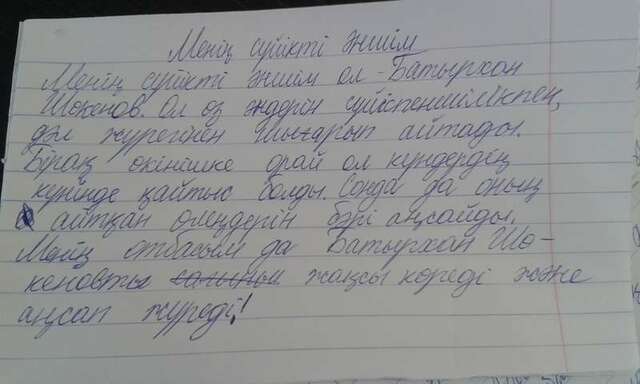 Менің сүйікті әншім
Менің сүйікті әншім ол - Батырхан
Шокенов. Ол өз әндерін сүйіспеншілікпен,
дәл жүрегінен шығарып айтады.
Бірақ өкінішке орай ол күндердің
күнінде қайтыс болды. Сонда да оның
айтқан өлеңдерін бәрі аңсайды.
Мейің отбасым да Батырхан Шо-
кеновты жақсы көреді және
аңсап жүреді!